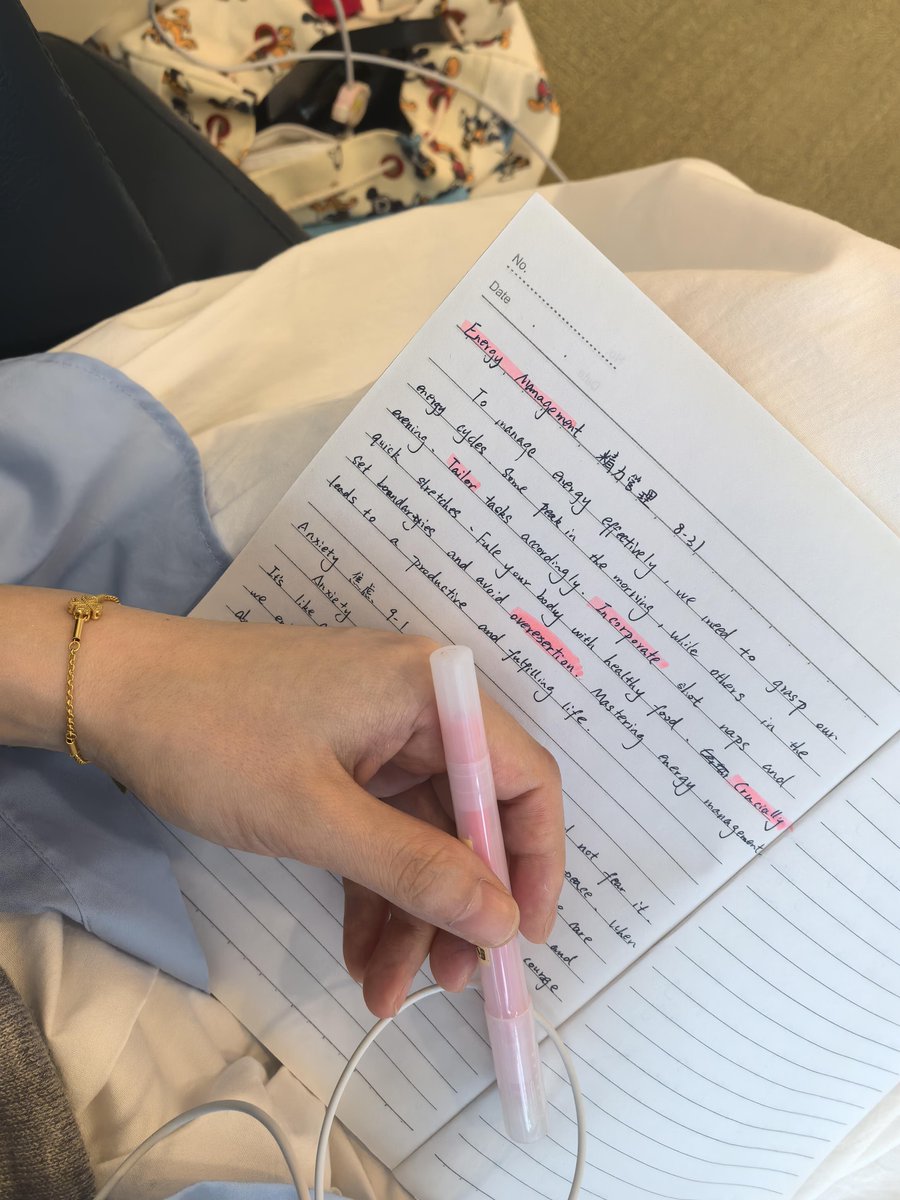 No.
Date
Energy Management 精力管理 8-31
To manage energy effectively, we need to grasp our
energy cycles. Some peak in the morning, while others in the
evening. Tailor tasks accordingly. Incorporate shot naps and
quick stretches. Fule your body with healthy food. Crucially
set boundarzies and avoid overesertion. Mastering energy management
leads to a productive and fulfilling life.
Anxiety 9-1
It's Anxiety not fear it.
like peace. when
we care and
courge